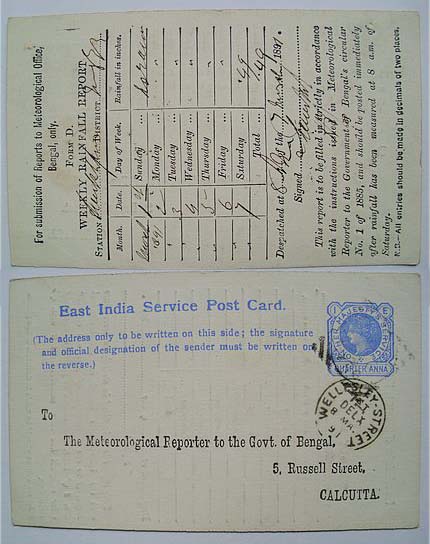 For submission of Reports to Meteorological Office,
Bengal, only.
FORM D.
WEEKLY RAINFALL REPORT
STATION DISTRICT
Month. Date. Day of Week. Rainfall in inches.
March 1st Sunday ...
1891 2 Monday ...
3 Tuesday ...
4 Wednesday ...
5 Thursday ...
6 Friday ...
7 Saturday ... .49
Total ... .49
Despatched at 8 the 7 March 1891.
Signed
This report is to be filled in strictly in accordance
with the instructions issued in Meteorological
Reporter to the Government of Bengal's circular
No. 1 of 1885, and should be posted immediately
after rainfall has been measured at 8 a.m. of
Saturday.
N.B.—All entries should be made in decimals of two places.
East India Service Post Card.
(The address only to be written on this side; the signature
and official designation of the sender must be written on
the reverse.)
I E
HER MAJESTY'S SERVICE
QUARTER ANNA
WELLESLEY-STREET
DELX
8 MA
91
To
The Meteorological Reporter to the Govt. of Bengal,
5, Russell Street,
CALCUTTA.